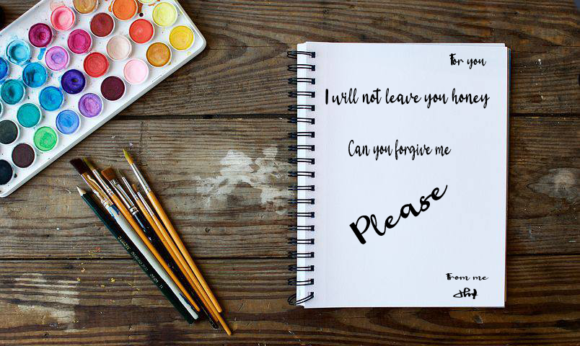 For you
I will not leave you honey
Can you forgive me
Please
From me